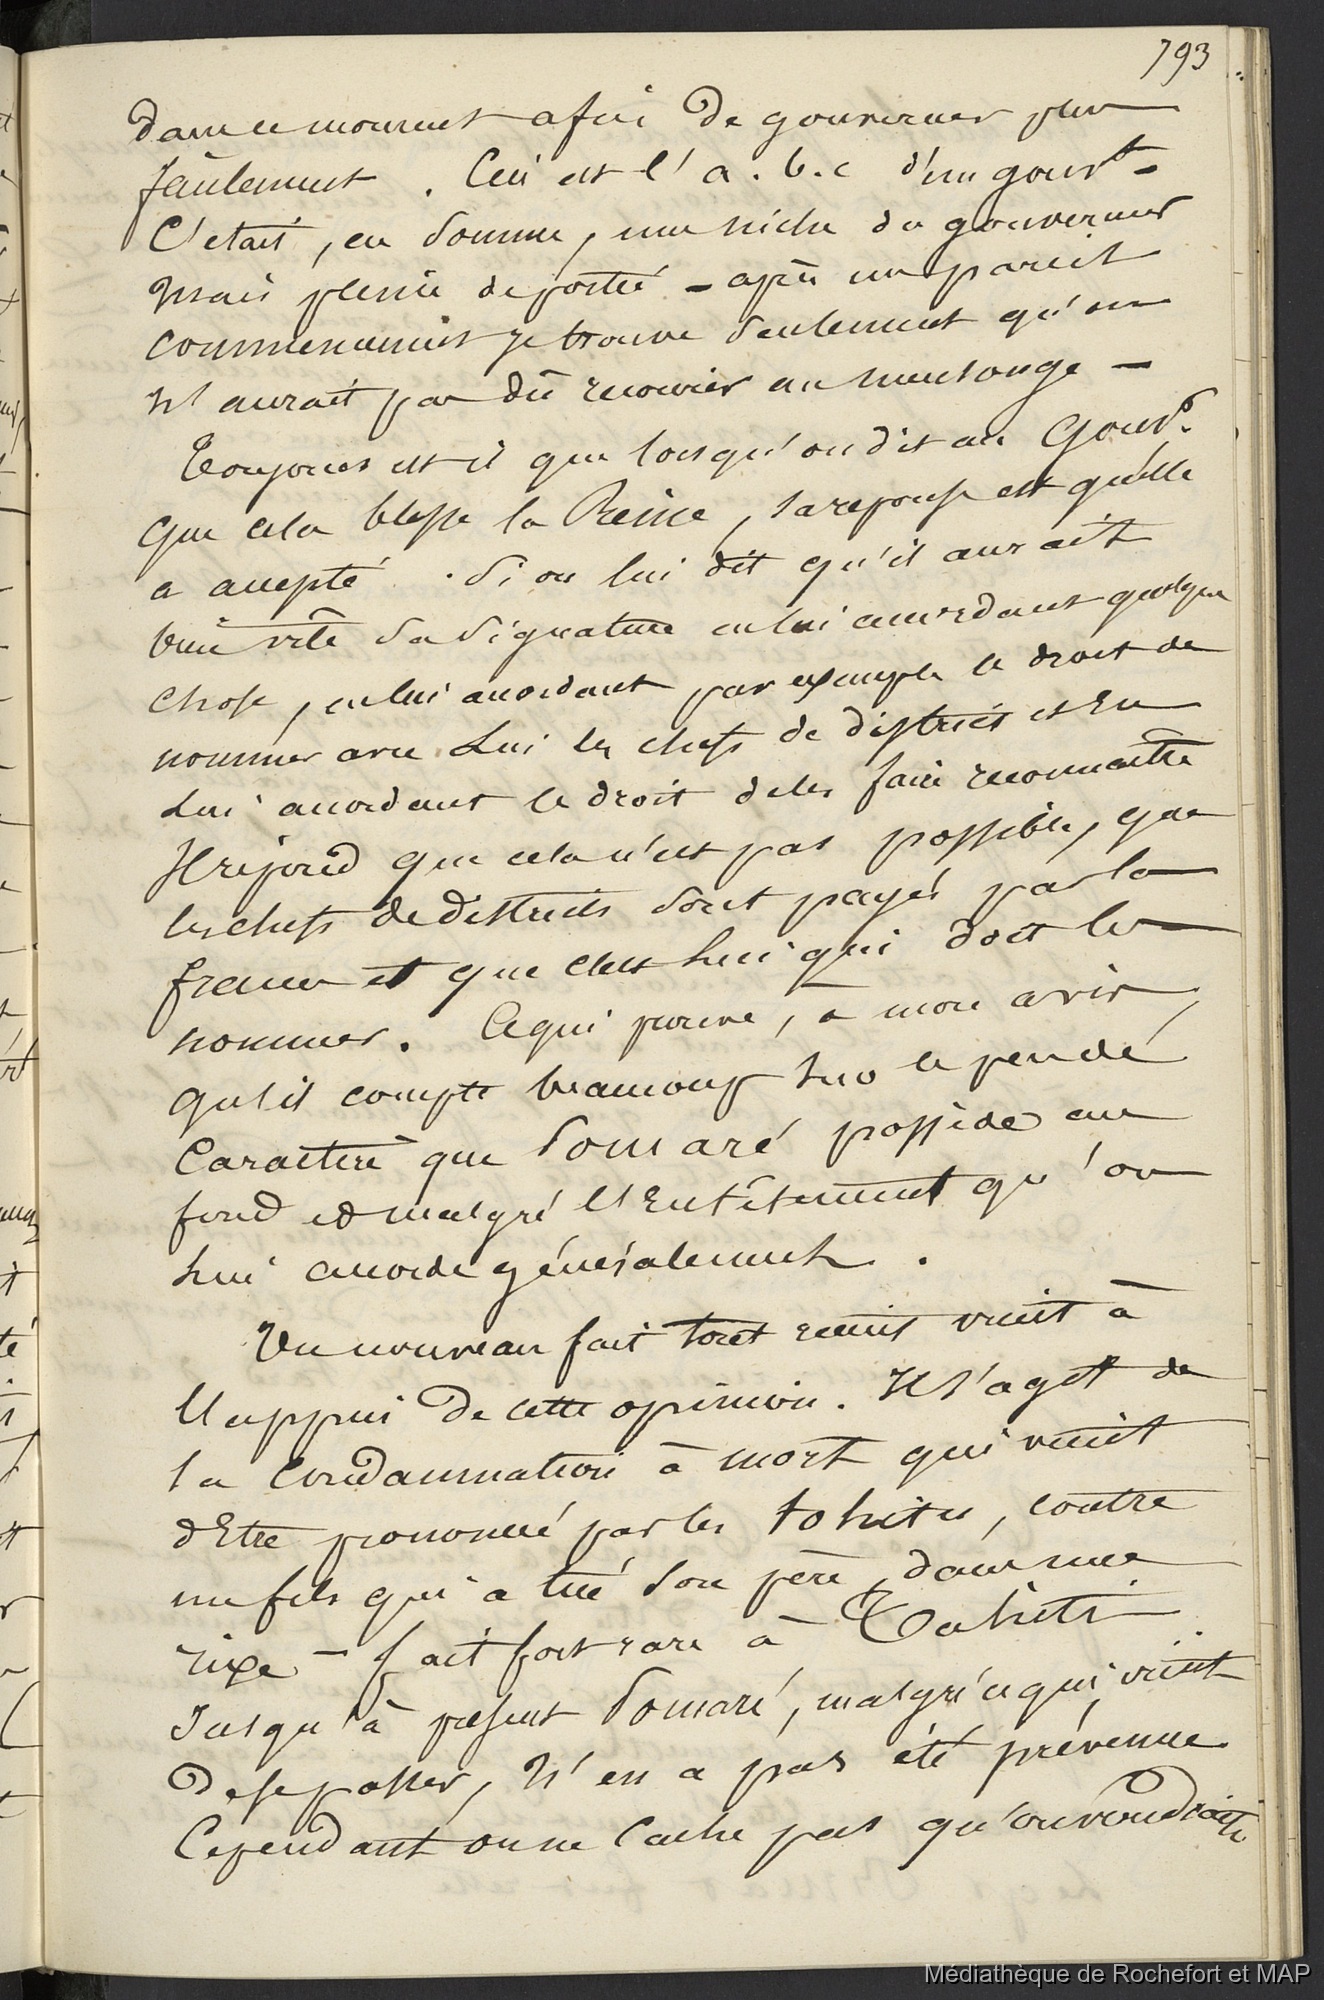 793
dans ce moment afin de gouverner plus
facilement. Ceci est l'a.b.c d'un gouvt -
C'etait, en somme, une niche du gouverneur
mais pleine de portée - après un pareil
commencement je trouve seulement qu'on
n'aurait pas dû recourir au mensonge -
Toujours est il que lorsqu'on dit au Gouvr.
que cela blesse la Reine, sa reponse est qu'elle
a accepté. Si on lui dit qu'il aurait
bien vite sa signature en lui accordant quelque
chose, en lui accordant par exemple le droit de
nommer avec Lui les chefs de districts et En
Lui accordant le droit de les faire reconnaitre
Il repond que cela n'est pas possible, que
les chefs de districts sont payés par la
france et que c'est Lui qui doit les
nommer. Ce qui prouve, à mon avis,
qu'il compte beaucoup sur le peu de
Caractère que Pomaré possède au
fond et malgré l'Entêtement qu'on
Lui accorde généralement.
Un nouveau fait tout récent vient à
l'appui de cette opinion. Il s'agit de
la Condamnation à mort qui vient
d'Etre prononcé par les tohitu, contre
un fils qui a tué son père, dans une
rixe - fait fort rare à Tahiti
Jusqu'à présent Pomaré, malgré ce qui vient
de se passer, n'en a pas été prévenue
Cependant on ne cache pas qu'on voudrait
Médiathèque de Rochefort et MAP